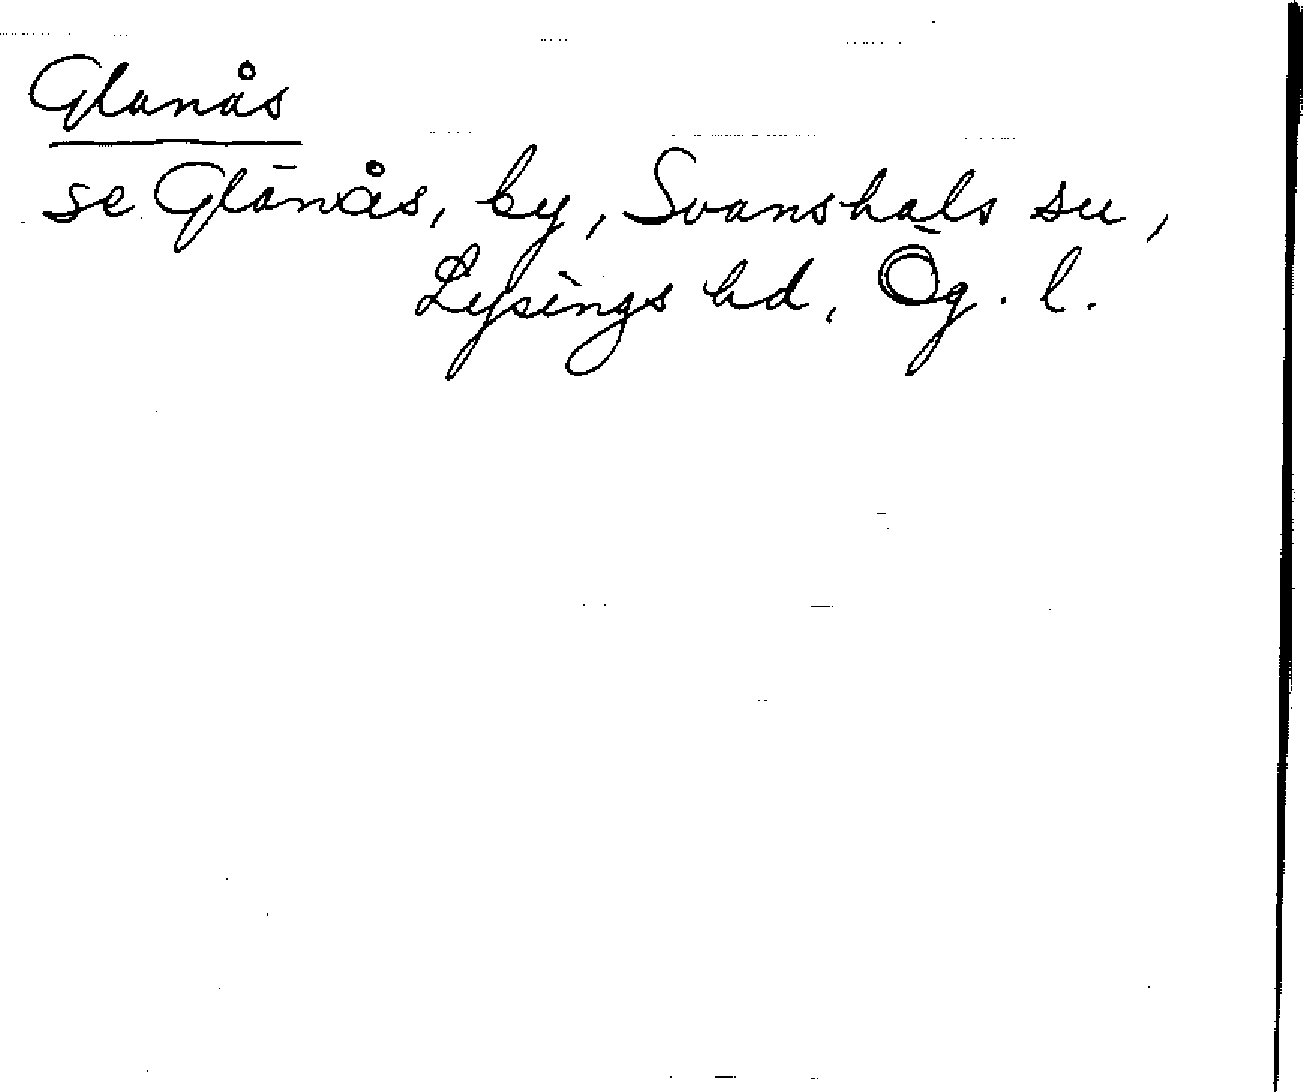 Glanås
se Glänås, by, Svanshals sn,
Lysings hd, Ög. l.